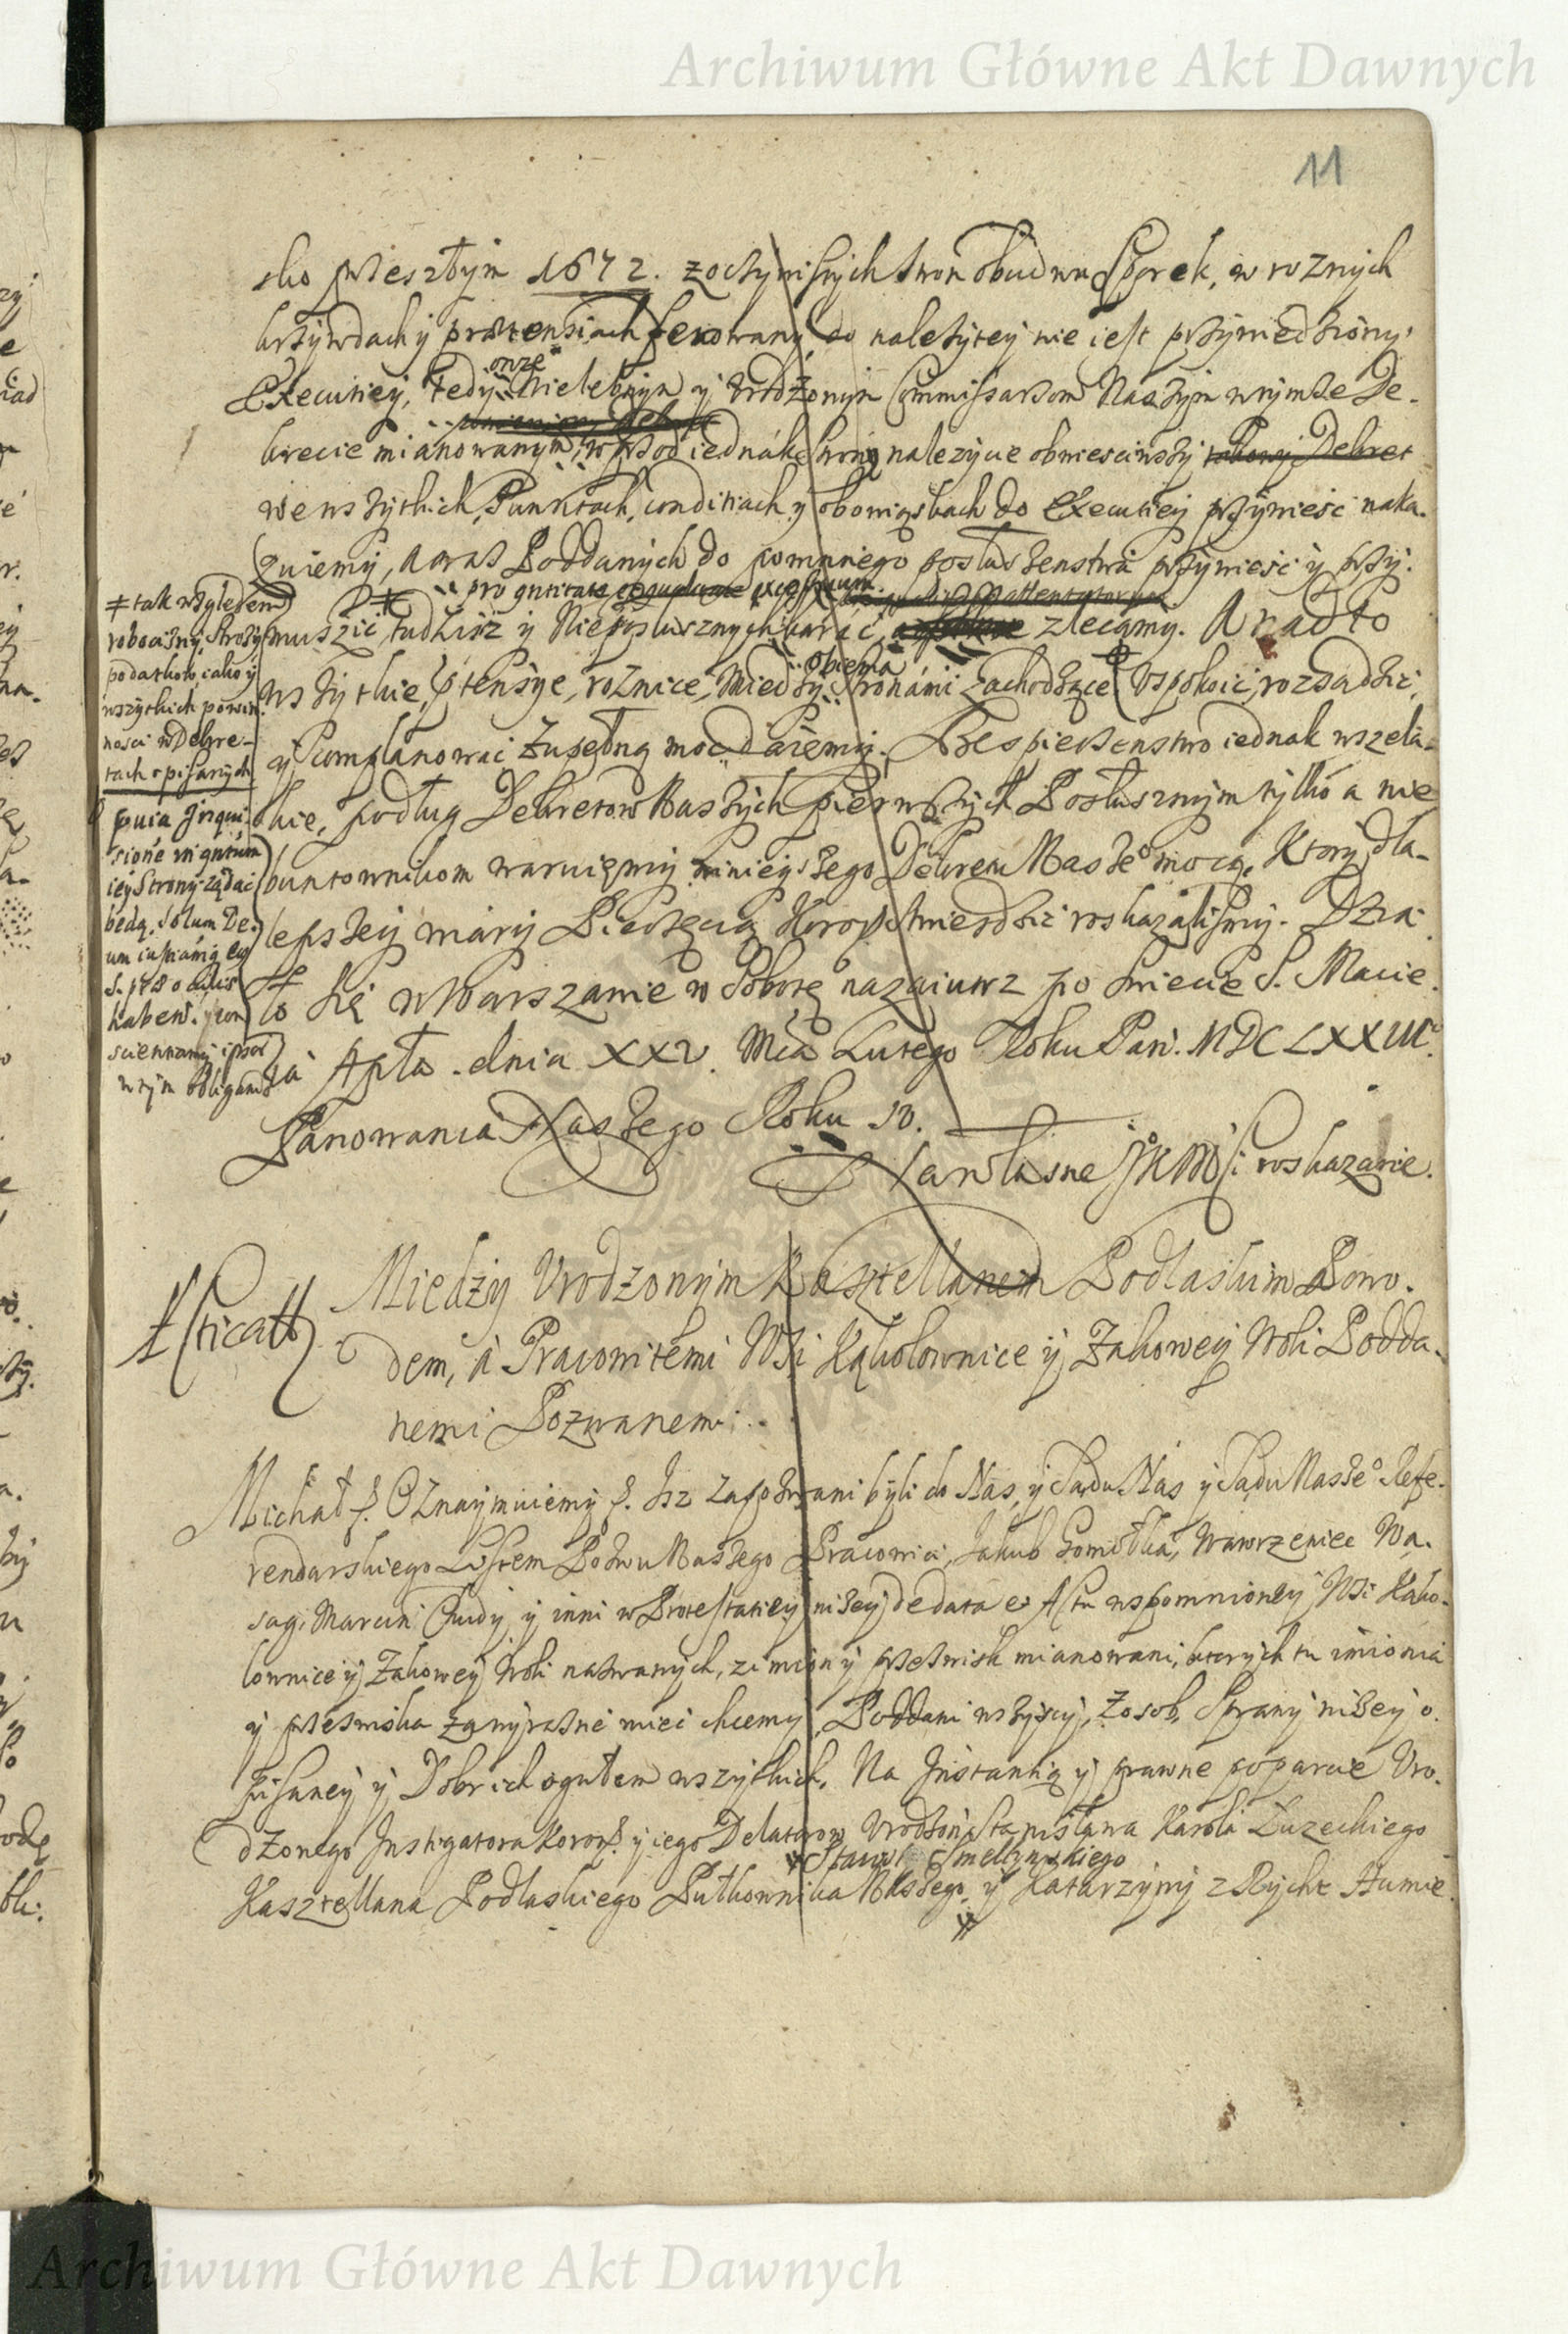 Archiwum Główne Akt Dawnych
11
sko przeszłym 1672. zoczywistych stron obudwu Sprek, w roznych
krzywdach y praetensiach ferowany, do należytey nie iest przywiedziony
Executiey, tedy Wielebnym y Urodzonym Commissarzom Naszym w tymże De-
krecie mianowanym, wprzod iednak strony nalezycie obwiesciwszy takowy Dekret
we wszytkich Punktach, conditiach y obowiąskach do Executiey przywieść naka-
zuiemy, a oraz Poddanych do powinnego posłuszenstwa przywieść y przy-
pro gravitate excessuum
musić, tudziesz y Nieposłusznych karać, zlecamy. A nadto
obiema
wszytkie ptensye, roznice, Miedzy Stronami zachodzące Uspokoić, rozsadzić,
y Complanować zupełną moc daiemy. Bespieczenstwo iednak wszela-
kie, podług Dekretow Naszych pierwszych Posłusznym tylko a nie
buntownikom waruięmy ninieyszego Dekretu Nasze⁰ mocą. Ktory dla
lepszey wiary Pieczęcią Koron. stwierdzić roskazalismy. Dzia-
ło się w Warszawie w Sobotę nazaiutrz po Swiecie S. Macie-
ia Apła. dnia XXV. Mca Lutego Roku Pań. MDCLXXIII.
Panowania Naszego Roku IV.
Na własne JKMści roskazanie.
≠ tak względem
robocizny, Stroży
podatkow, iako y
wszytkich powin-
nosci w Dekre-
tach opisanych
iey Strony żądać
będą, solum De-
um
S. pro oculis
haben.
w tym obligamus
Miedzy Urodzonym Kasztellanem Podlaskim Powo-
dem, a Pracowitemi Wsi Kąkolownice y Żakowey Woli Podda-
nemi Pozwanemi.
Michał &. Oznaymuiemy &. Isz zapozwani byli do Nas, y Sądu Nas y Sądu Nasze⁰ Refe-
rendarskiego Listem Pozwu Naszego Pracowici, Jakub Gomołka, Wawrzeniec Wą-
sag, Marcin Chudy y inni w Protestatiey niżey de data et Actu wspomnioney Wsi Kąko-
lownice y Żakowey Woli nazwanych, z imion y przezwisk mianowani, ktorych tu imiona
y przezwiska zawyrazne mieć chcemy, Poddani wszyscy, Z osob, Sprawy niżey o-
pisaney y Dobr ich ogułem wszytkich. Na Instantią y prawne poparcie Uro-
dzonego Instigatora Koron. y iego Delatorow Urodzon. Stanisława Karola Łuzeckiego
Kasztellana Podlaskiego Pułkownika Naszego, y Katarzyny z Rycht Humie
Archiwum Główne Akt Dawnych